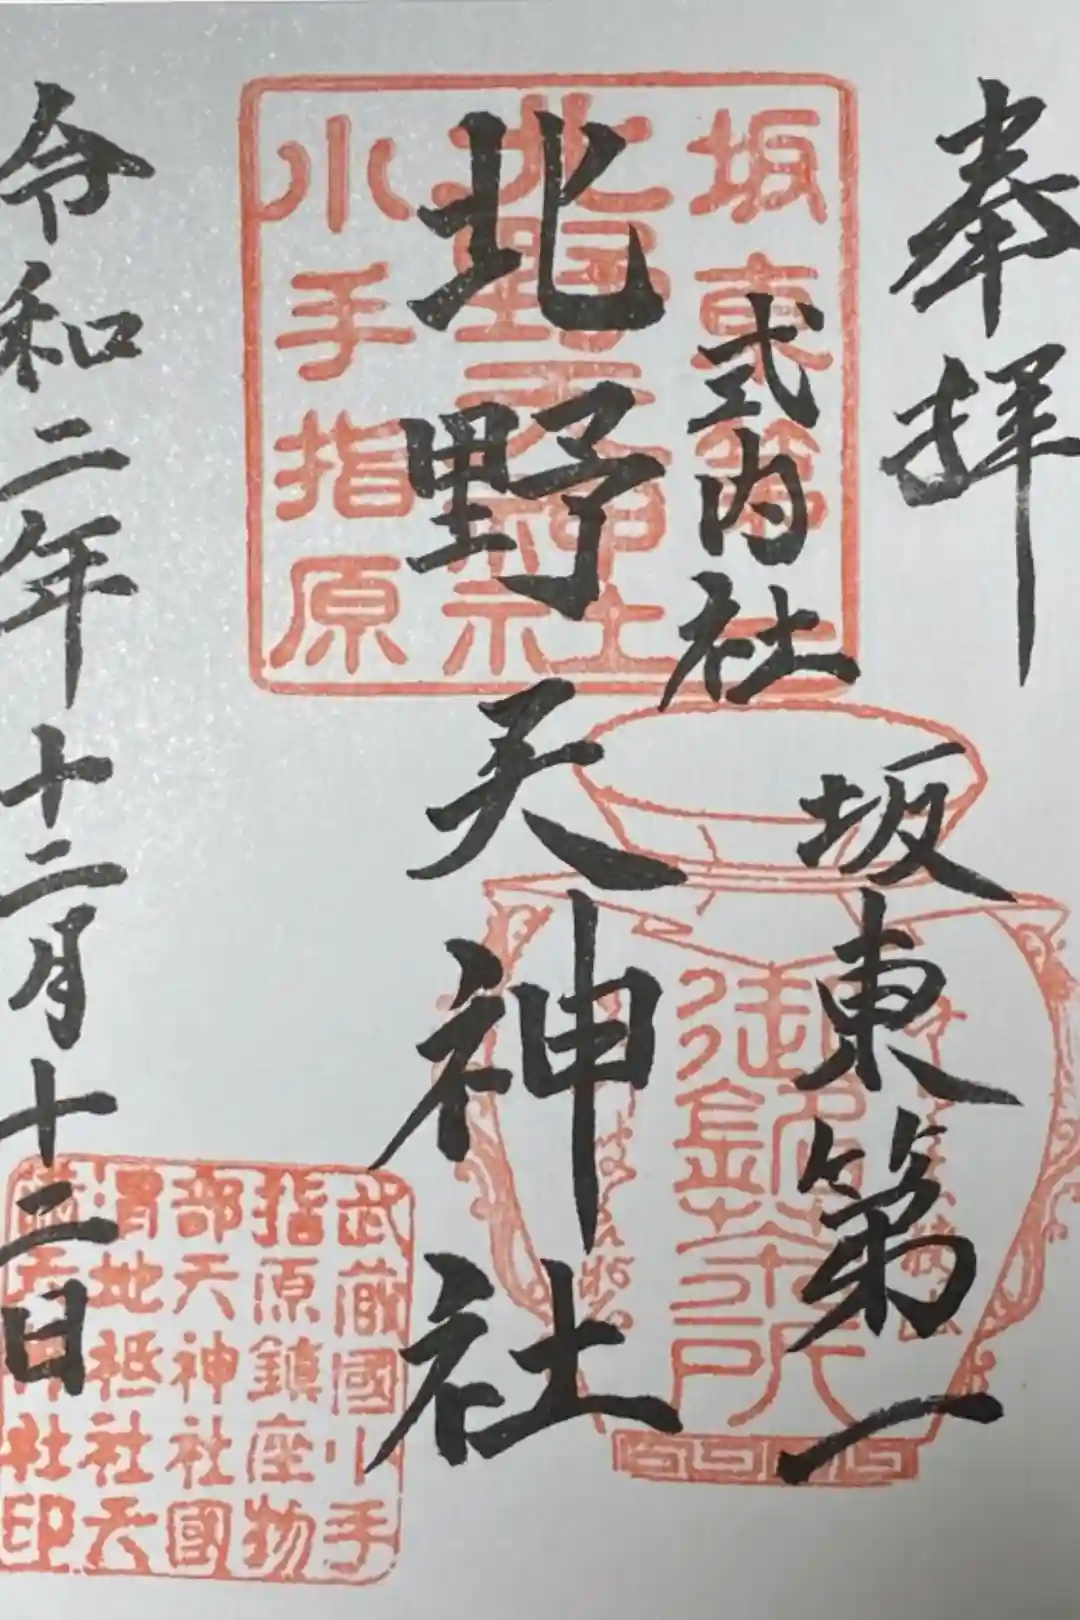 奉拝
式内社
坂東第一
北野天神社
令和二年十二月十二日
坂東第一
北野天神社
小手指原
武蔵國小手
指原鎮座物
部天神社國
渭地祇社天
社印